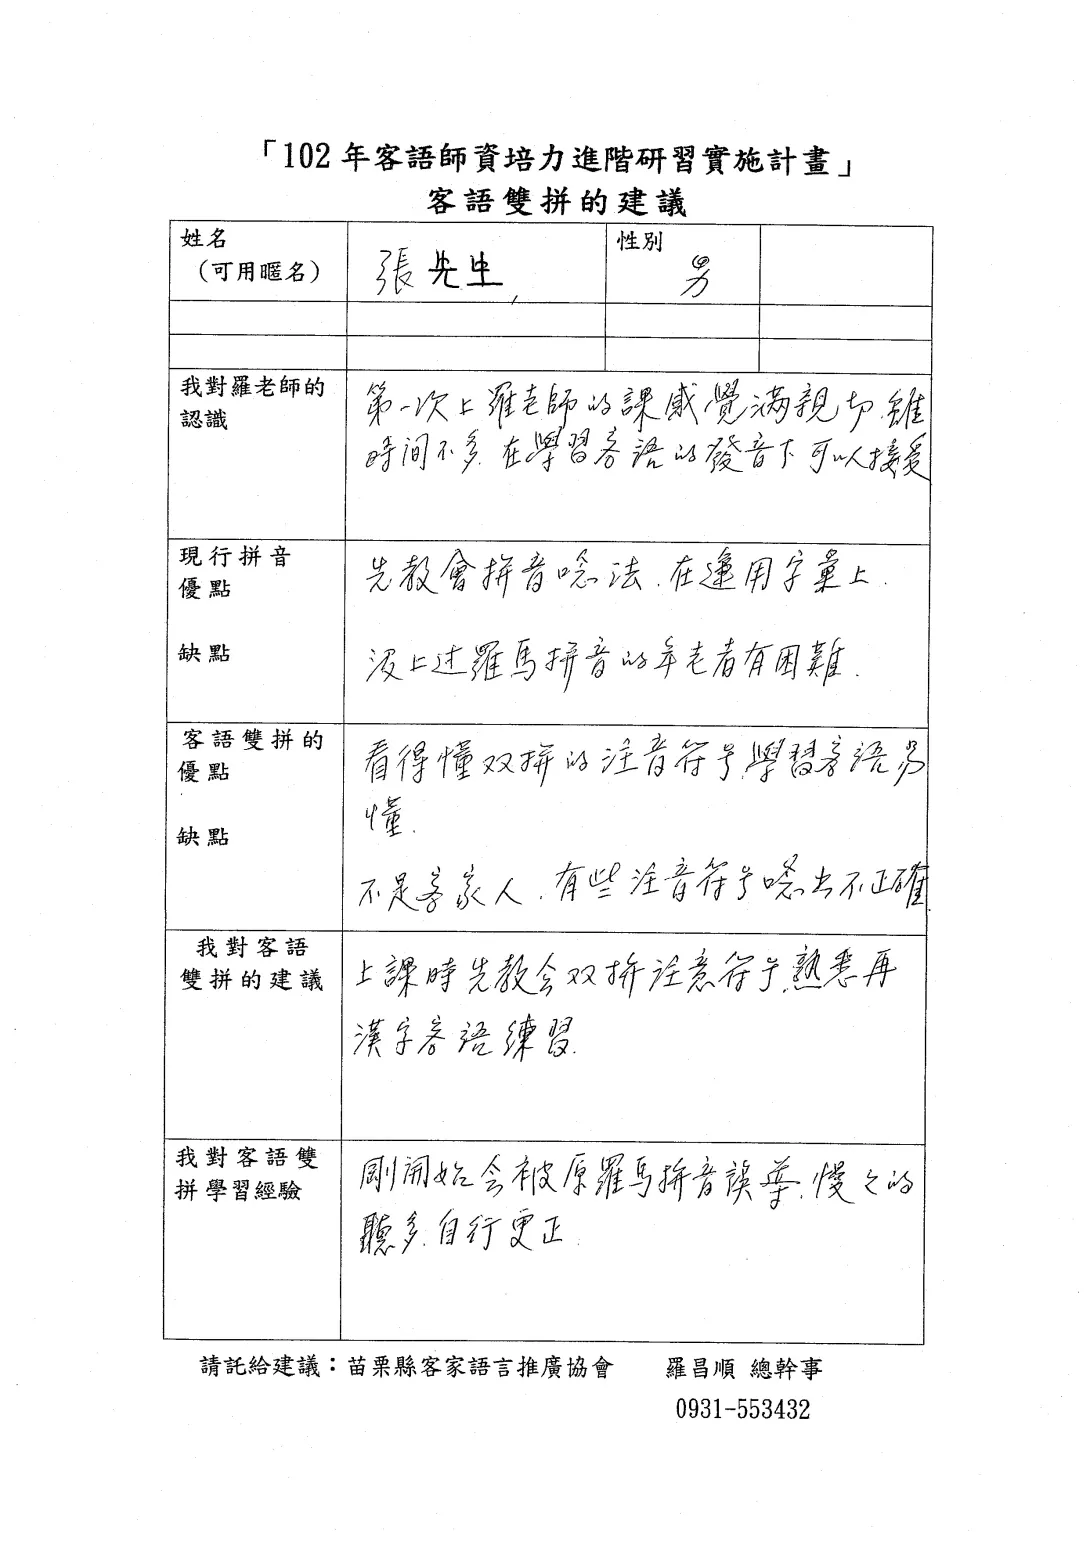 「102 年客語師資培力進階研習實施計畫」
客語雙拼的建議
姓名
（可用暱名）
張先生
性別
男
我對羅老師的
認識
第一次上羅老師的課感覺滿親切.雖
時间不多.在學習客語的發音下可以接受
現行拼音
優點
先教會拼音唸法.在運用字彙上.
缺點
沒上过羅馬拼音的年老者有困難.
客語雙拼的
優點
看得懂双拼的注音符号.學習客語易
懂.
缺點
不是客家人.有些注音符号唸出不正確.
我對客語
雙拼的建議
上課時先教会双拼注意符号.熟悉再
漢字客語練習.
我對客語雙
拼學習經驗
剛開始会被原羅馬拼音誤導.慢々的
聽多.自行更正.
請託給建議：苗栗縣客家語言推廣協會 羅昌順 總幹事
0931-553432